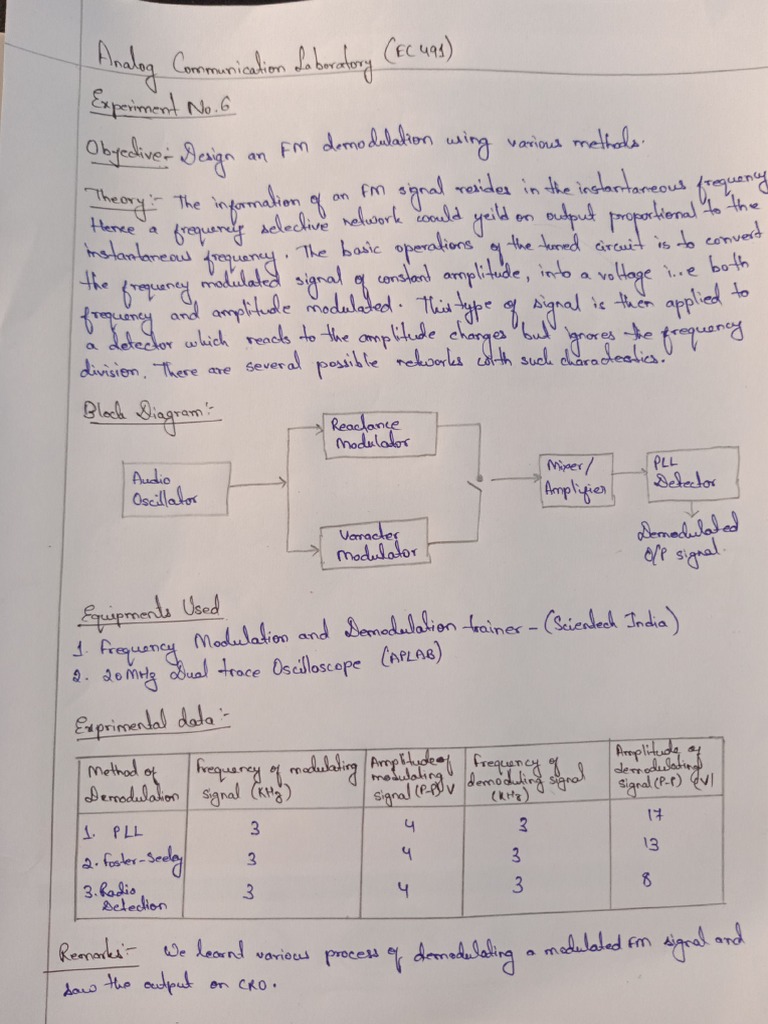 Analog Communication Laboratory (EC491)
Experiment No. 6
Objective:- Design an FM demodulation using various methods.
Theory:- The information of an FM signal resides in the instantaneous frequency
Hence a frequency selective network would yeild on output proportional to the
instantaneous frequency. The basic operations of the tuned circuit is to convert
the frequency modulated signal of constant amplitude, into a voltage i..e both
frequency and amplitude modulated. This type of signal is then applied to
a detector which reacts to the amplitude changes but ignores the frequency
division. There are several possible networks with such
Block Diagram:-
Audio
Oscillator
Reactance
Modulator
Varacter
Modulator
Mixer/
Amplifier
PLL
Detector
Demodulated
O/P signal.
Equipments Used
1. Frequency Modulation and Demodulation trainer - (Scientech India)
2. 20 MHz Dual trace Oscilloscope (APLAB)
Exprimental data:-
Method of
Demodulation
Frequency of modulating
signal (KHz)
Amplitude of
modulating
signal (P-P) V
Frequency of
demoduling signal
(KHz)
Amplitude of
demodulating
signal (P-P) (V)
1. PLL 3 4 3 17
2. Foster-Seeley 3 4 3 13
3. Radio
Detection 3 4 3 8
Remarks:- We learnd various process of demodulating a modulated FM signal and
saw the output on CRO.